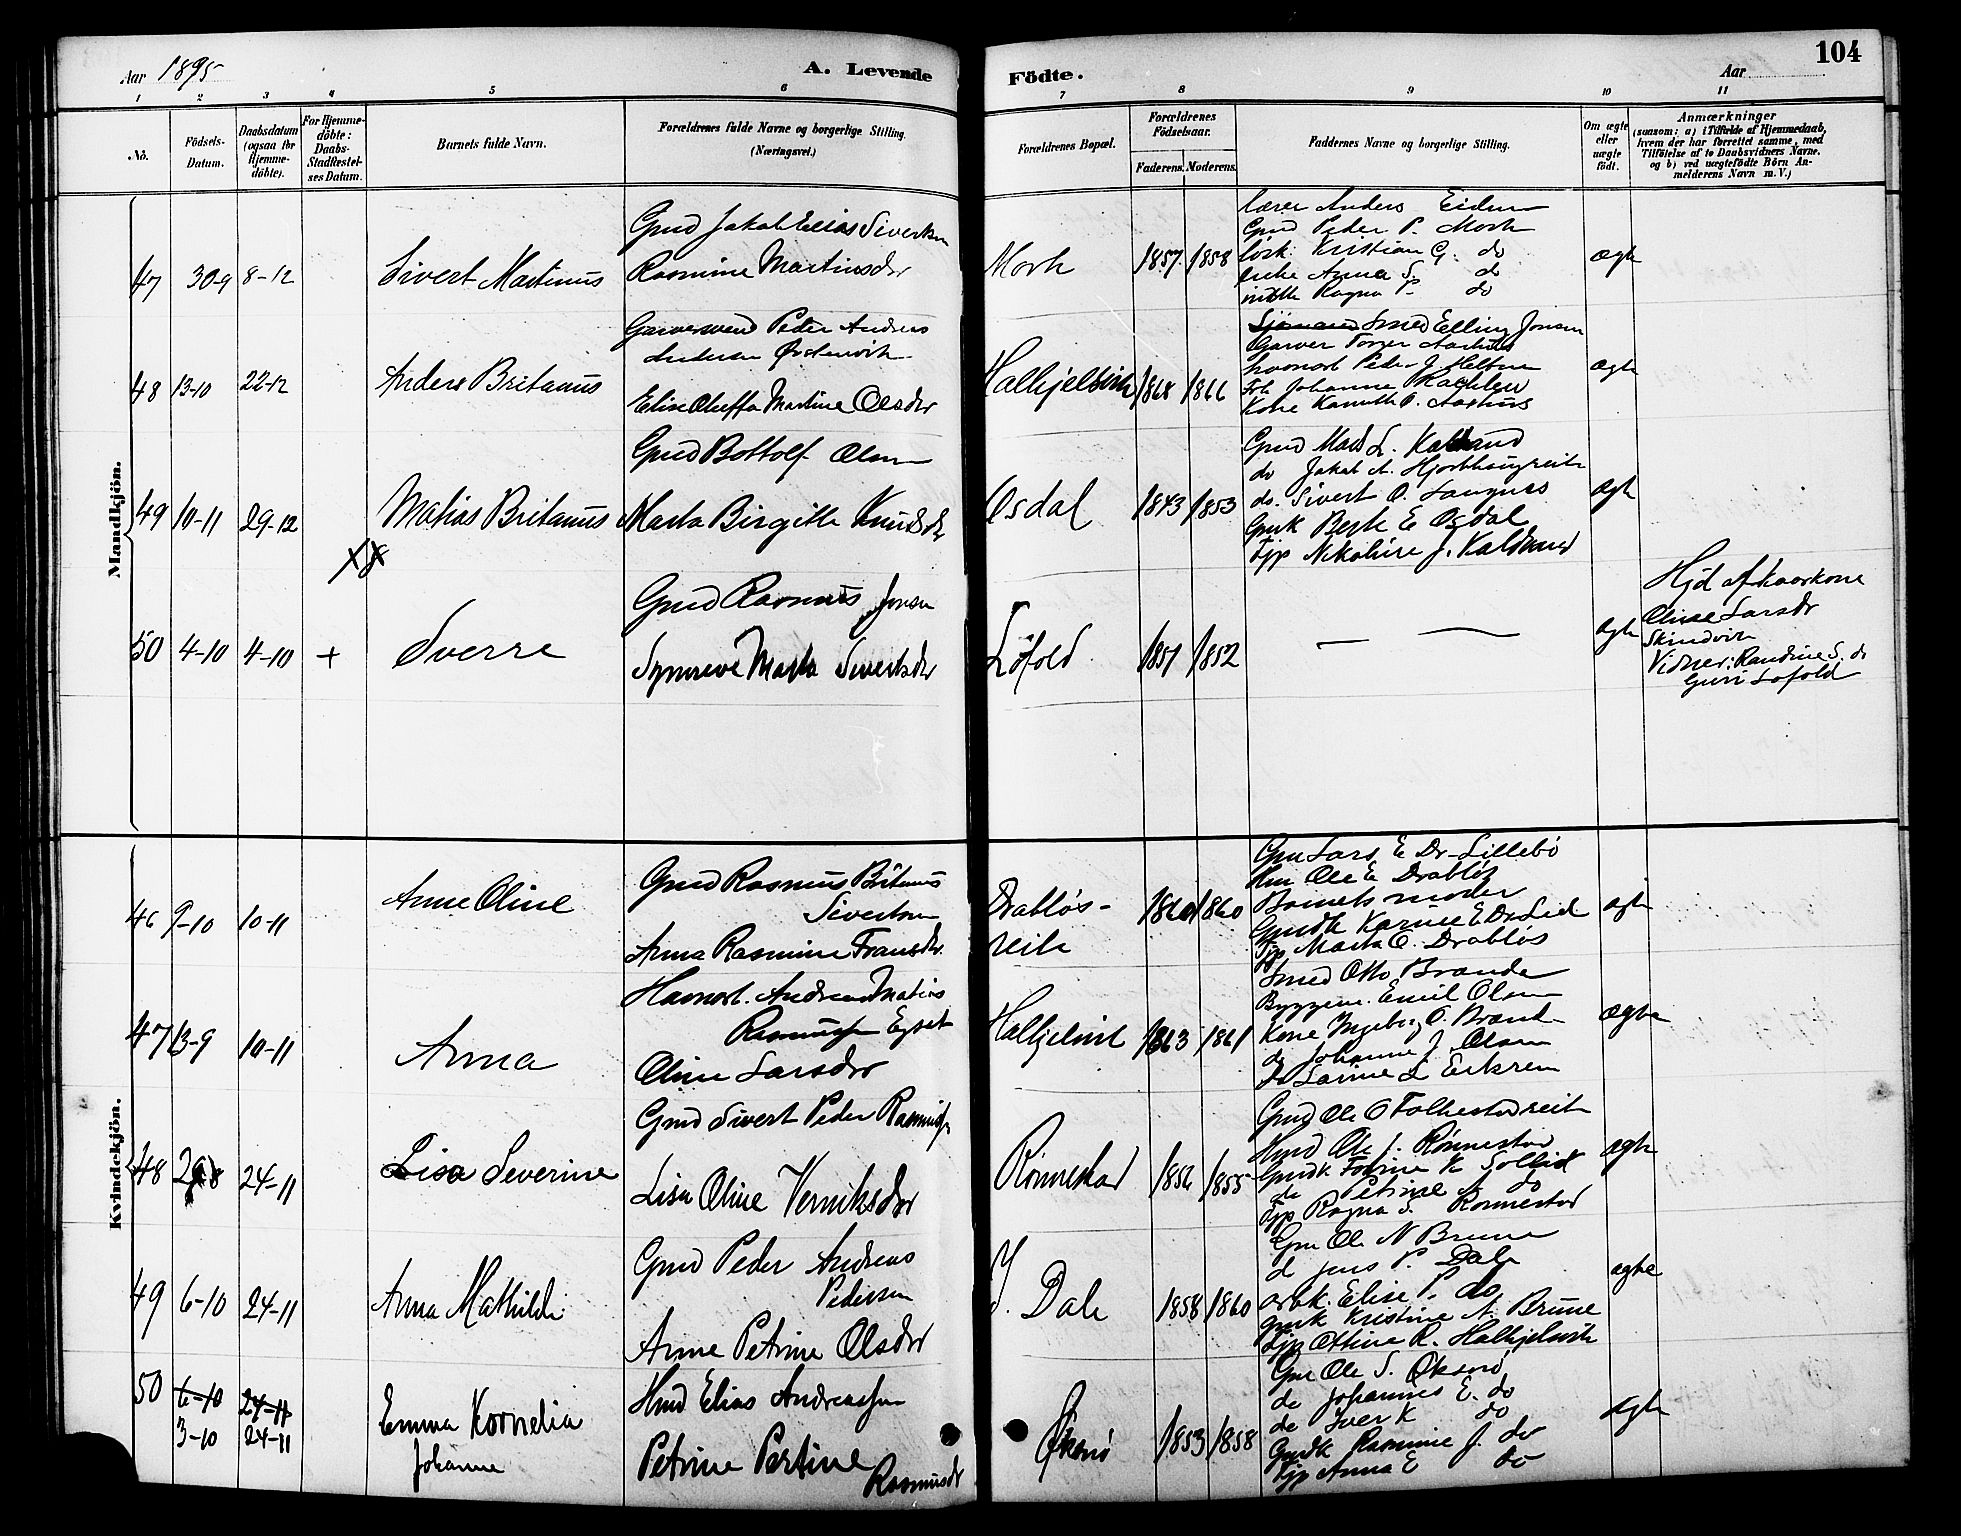 Aar 1895
A. Levende
Födte.
Aar
104
1
2
3
4
5
6
7
8
9
10
11
No.
Födsels-
Datum.
Daabsdatum
(ogsaa for
Hjemme-
döbte).
For Hjemme-
döbte:
Daabs-
Stadfæstel-
ses Datum.
Barnets fulde Navn.
Forældrenes fulde Navne og borgerlige Stilling.
(Næringsvei.)
Forældrenes Bopæl.
Forældrenes
Födselsaar.
Faderens.
Moderens.
Faddernes Navne og borgerlige Stilling.
Om ægte
eller
uægte
födt.
Anmærkninger
(saasom: a) i Tilfælde af Hjemmedaab,
hvem der har forrettet samme, med
Tilföielse af to Daabsvidners Navne.
og b) ved uægtefödte Börn An-
melderens Navn m. V.)
Mandkjön.
47
30-9
8-12
Sivert Martinus
Gmd Jakob Elias Sivertsen
Rasmine Martinsdr
Mork
1857
1858
lærer Anders Eidem
Gmd Peder P. Mork
Kristian G. do
Anna S. do
Ragna P. do
ægte
48
13-10
22-12
Anders Britanus
Garversvend Peder Andreas
Andersen Ørstenvik
Elise Oleffa Martine Olsdr
Halkjelsvik
1868
1866
Sjömand Smed Elling Jonsen
Garver Aarhus
Peder J
Johanne
Kone P. Aarhus
ægte
49
10-11
29-12
Matias Britanus
Gmd Bottolf Olsen
Marta Birgitte Knudsdr
Osdal
1843
1853
Gmd Mads L. Kaldvand
do Jakob A. Hjorthaugreite
do. Sivert O. Langnes
Gmk Berte E Osdal
Tjp Nikoline J. Kaldvand
ægte
50
4-10
4-10
+
Sverre
Gmd Rasmus Jonsen
Synneve Marta Sivertsdr
Löfold
1851
1852
ægte
Hjd af kaarkone
Oline Larsdr
Skindvik
Vidner: Randine S. do
Guri Lofold
Kvindekjön.
46
9-10
10-11
Anne Oline
Gmd Rasmus Britanus
Sivertsen
Anna Rasmine Fransdr.
Drabløs-
reite
1860
1860
Gm Lars E Dr-Lillebö
Ole E Drabløs
Barnets moder
Gmdk Karine E Dr.
Tjp Marta O. Drabløs
ægte
47
13-9
10-11
Anna
Havnarb. Andreas Matias
Rasmussen Eyset
Oline Larsdr
Halkjelsvik
1863
1861
Smed Otto Brande
Byggm. Emil Olsen
Kone Ingeborg O. Brande
do Johanne J Olsen
do Larine L
ægte
48
24-11
Lisa Severine
Gmd Sivert Peder Rasmussen
Lisa Oline Verniksdr
Rönnestad
1856
1855
Gmd Ole O Folkestadreite
Hmd Ole J. Rönnestad
Gmdk K Sollid
do Petrine A do
Tjp Ragna S. Ronnestad
ægte
49
6-10
24-11
Anna Mathilde
Gmd Peder Andreas
Pedersen
Anne Petrine Olsdr
Y
d. Dale
1858
1860
Gm Ole N Brune
d Jens P. Dale
Elise P. do
gmk Kristine A. Brune
Tjp Ottine R. Halkjelsvik
ægte
50
6-10
24-11
3-10
24-11
Emma Kornelia
Johanne
Hmd Elias Andreassen
Petrine Pertine
Rasmusdr
Øksnö
1853
1858
Gm Ole S. Øksnö
do Johannes E. do
do Iver K do
Gmdk Rasmine J. do
Tjp Anna E do
ægte